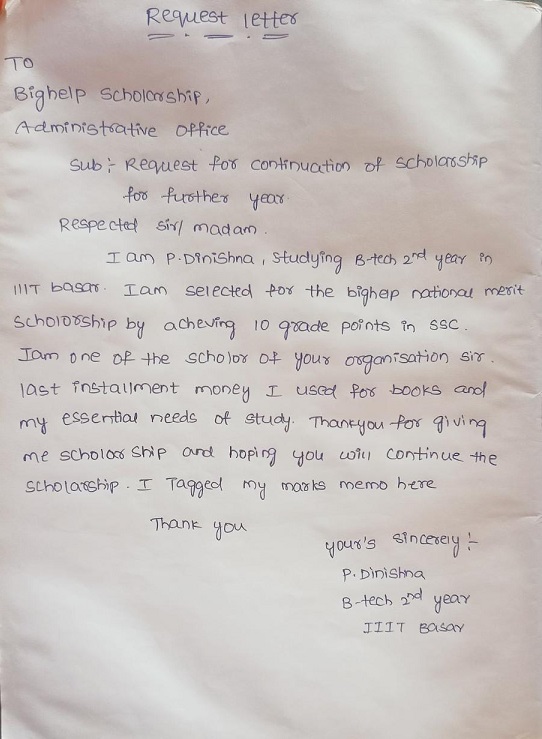 Request letter
TO
Bighelp Scholarship,
Administrative office
Sub :- Request for continuation of scholarship
for further year.
Respected sir/ madam.
I am P.Dinishna, studying B-tech 2nd year in
IIIT basar. I am selected for the bighelp national merit
scholorship by acheving 10 grade points in SSC.
I am one of the scholor of your organisation sir.
last installment money I used for books and
my essential needs of study. Thankyou for giving
me scholar ship and hoping you will continue the
scholarship. I Tagged my marks memo here
Thank you
your's sincerely :-
P. Dinishna
B-tech 2nd year
IIIT Basar